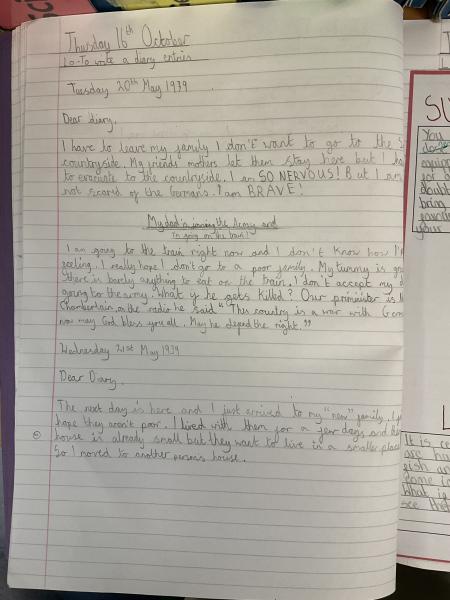 Thursday 16th October
Lo-To write a diary entries
Tuesday 20th May 1939
Dear diary,
I have to leave my family I don't want to go to the
countryside. My friends mothers let them stay here but I
to evacuate to the countryside. I am SO NERVOUS! But I am
not scared of the Germans. I am BRAVE!
My dad is joining the Army and
I'm going on the train!
I am going to the train right now and I don't know how I'm
feeling. I really hope I don't go to a poor family. My tummy is
there is barely anything to eat on the train. I don't accept my
going to the army. What if he gets killed? Our primeister is
Chamberlain, on the radio he said "This country is a war with
now may God bless you all. May he depend the right."
Wednesday 21st May 1939
Dear Diary,
The next day is here and I just arrived to my "new" family. I
hope they aren't poor. I lived with them for a few days and
house is already small but they want to live in a smaller place
So I moved to another persons house.
SU
You
does
equip
for a
doubt
bring
your
L
It is
are hu
come in
What is
see the